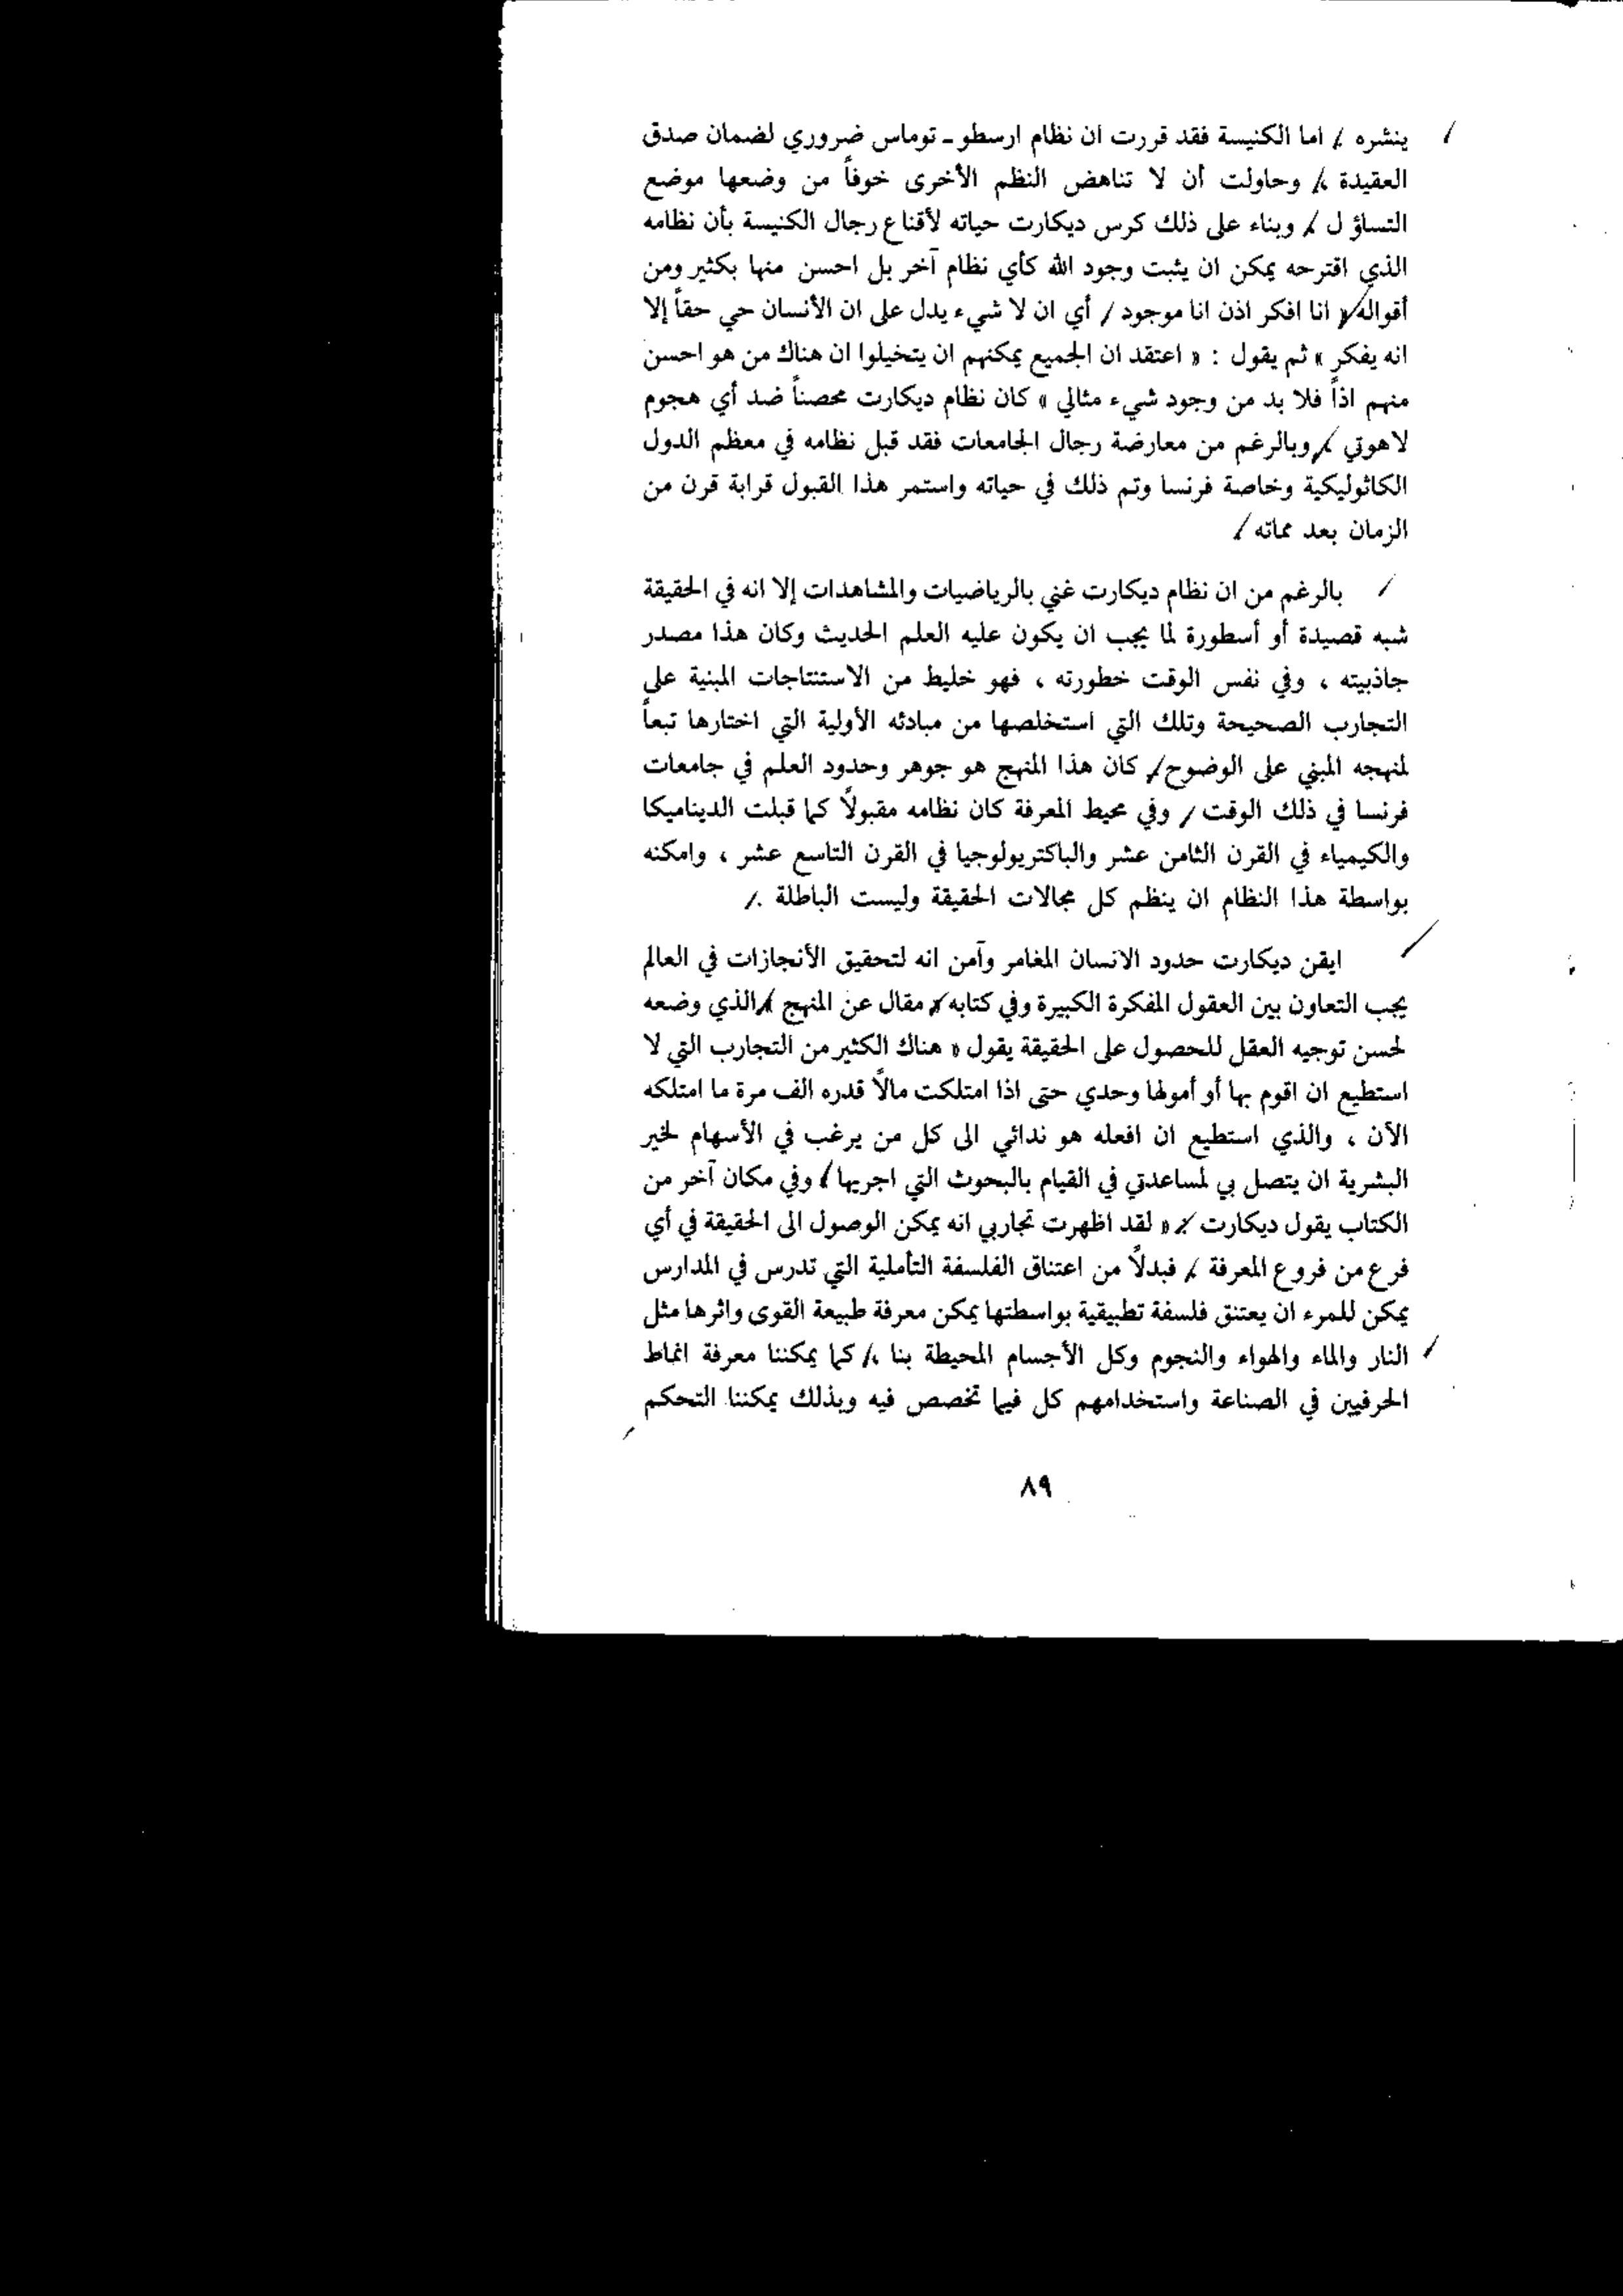 ينشره . اما الكنيسة فقد قررت ان نظام ارسطو ـ توماس ضروري لضمان صدق
العقيدة ، وحاولت أن لا تناهض النظم الأخرى خوفاً من وضعها موضع
التساؤل . وبناء على ذلك كرس ديكارت حياته لأقناع رجال الكنيسة بأن نظامه
الذي اقترحه يمكن ان يثبت وجود الله كأي نظام آخر بل احسن منها بكثير ومن
أقواله « انا افكر اذن انا موجود / أي ان لا شيء يدل على ان الأنسان حي حقاً إلا
انه يفكر » ثم يقول : « اعتقد ان الجميع يمكنهم ان يتخيلوا ان هناك من هو احسن
منهم اذاً فلا بد من وجود شيء مثالي » كان نظام ديكارت محصناً ضد أي هجوم
لاهوتي ، وبالرغم من معارضة رجال الجامعات فقد قبل نظامه في معظم الدول
الكاثوليكية وخاصة فرنسا وتم ذلك في حياته واستمر هذا القبول قرابة قرن من
الزمان بعد مماته .
بالرغم من ان نظام ديكارت غني بالرياضيات والمشاهدات إلا انه في الحقيقة
شبه قصيدة أو أسطورة لما يجب ان يكون عليه العلم الحديث وكان هذا مصدر
جاذبيته ، وفي نفس الوقت خطورته ، فهو خليط من الاستنتاجات المبنية على
التجارب الصحيحة وتلك التي استخلصها من مبادئه الأولية التي اختارها تبعاً
لمنهجه المبني على الوضوح . كان هذا المنهج هو جوهر وحدود العلم في جامعات
فرنسا في ذلك الوقت / وفي محيط المعرفة كان نظامه مقبولاً كما قبلت الديناميكا
والكيمياء في القرن الثامن عشر والباكتريولوجيا في القرن التاسع عشر ، وامكنه
بواسطة هذا النظام ان ينظم كل مجالات الحقيقة وليست الباطلة .
ايقن ديكارت حدود الانسان المغامر وآمن انه لتحقيق الأنجازات في العالم
يجب التعاون بين العقول المفكرة الكبيرة وفي كتابه « مقال عن المنهج » الذي وضعه
لحسن توجيه العقل للحصول على الحقيقة يقول « هناك الكثير من التجارب التي لا
استطيع ان اقوم بها أو أمولها وحدي حتى اذا امتلكت مالاً قدره الف مرة ما امتلكه
الآن ، والذي استطيع ان افعله هو ندائي الى كل من يرغب في الأسهام لخير
البشرية ان يتصل بي لمساعدتي في القيام بالبحوث التي اجريها » وفي مكان آخر من
الكتاب يقول ديكارت : « لقد اظهرت تجاربي انه يمكن الوصول الى الحقيقة في أي
فرع من فروع المعرفة . فبدلاً من اعتناق الفلسفة التأملية التي تدرس في المدارس
يمكن للمرء ان يعتنق فلسفة تطبيقية بواسطتها يمكن معرفة طبيعة القوى واثرها مثل
النار والماء والهواء والنجوم وكل الأجسام المحيطة بنا ، كما يمكننا معرفة انماط
الحرفيين في الصناعة واستخدامهم كل فيما تخصص فيه وبذلك يمكننا التحكم
٨٩